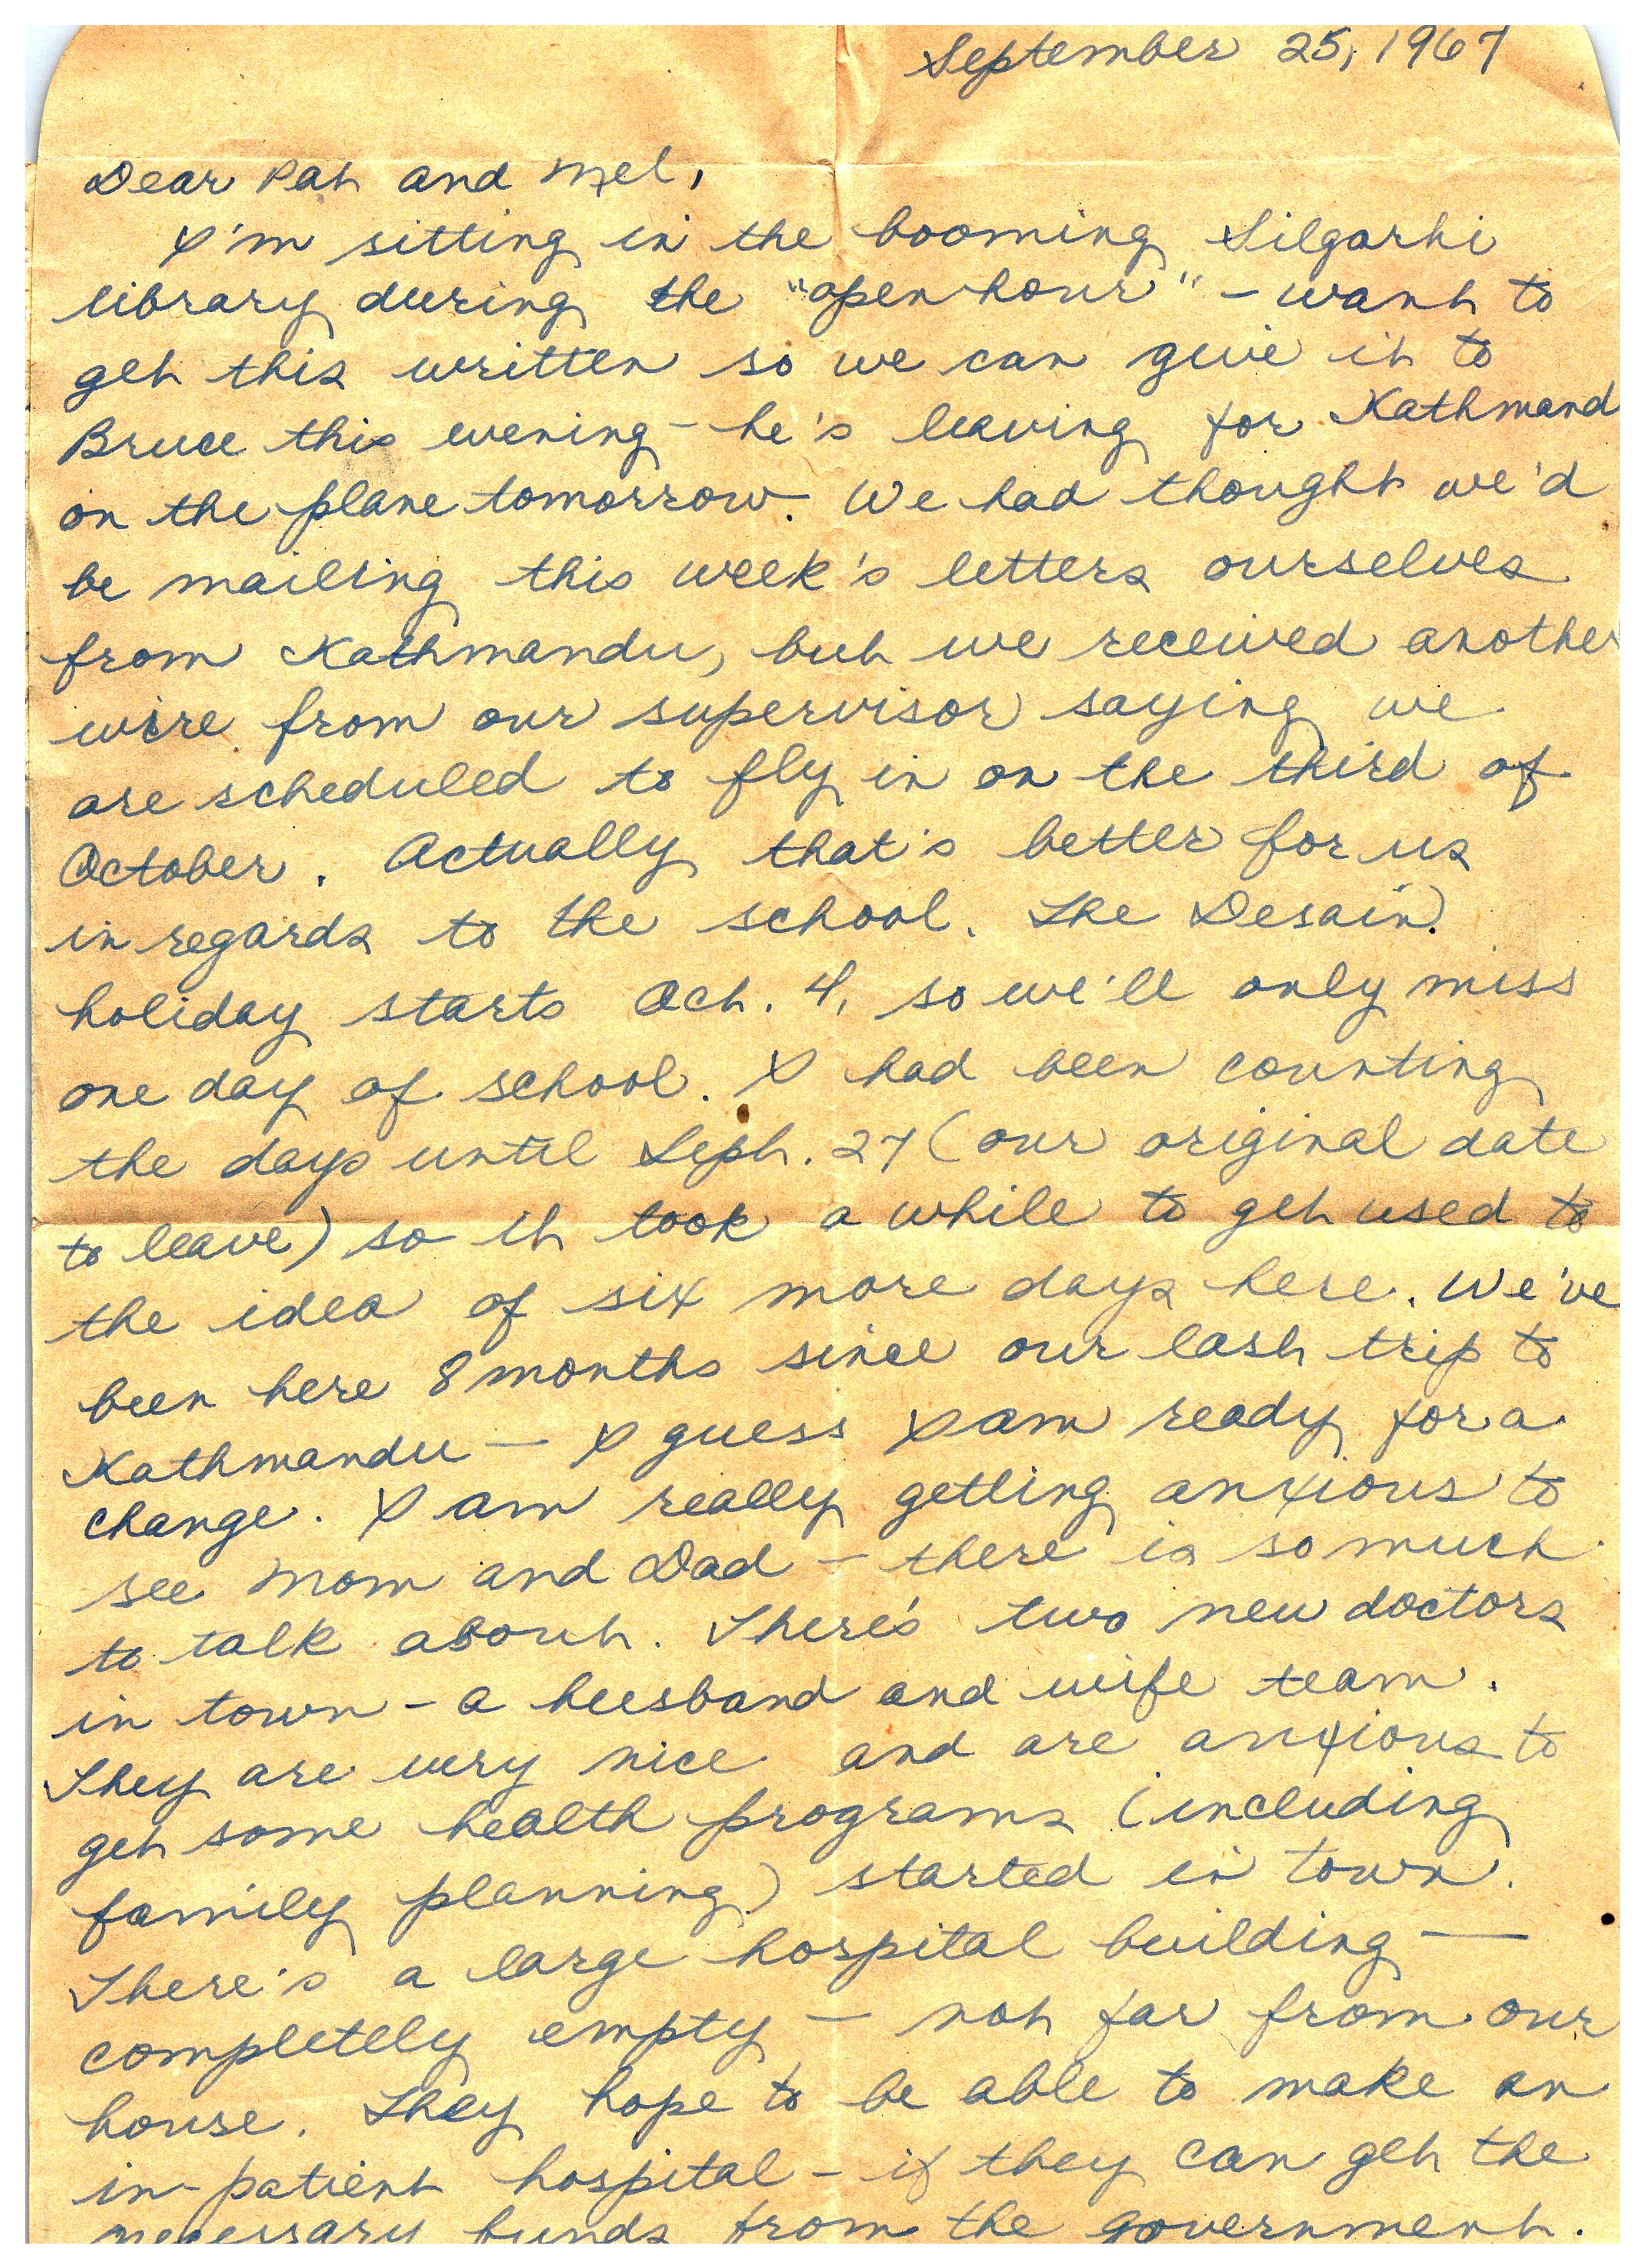 September 25, 1967
Dear Pat and Mel,
I'm sitting in the booming Silgarhi
library during the "open hour" – want to
get this written so we can give it to
Bruce this evening – he's leaving for Kathmand
on the plane tomorrow. We had thought we'd
be mailing this week's letters ourselves
from Kathmandu, but we received another
wire from our supervisor saying we
are scheduled to fly in on the third of
October. Actually that's better for us
in regards to the school. The Desain
holiday starts Oct. 4, so we'll only miss
one day of school. I had been counting
the days until Sept. 27 (our original date
to leave) so it took a while to get used to
the idea of six more days here. We've
been here 8 months since our last trip to
Kathmandu — I guess I am ready for a
change. I am really getting anxious to
see Mom and Dad – there is so much
to talk about. There's two new doctors
in town – a husband and wife team.
They are very nice and are anxious to
get some health programs (including
family planning) started in town.
There's a large hospital building —
completely empty – not far from our
house. They hope to be able to make an
in-patient hospital – if they can get the
necessary funds from the government.